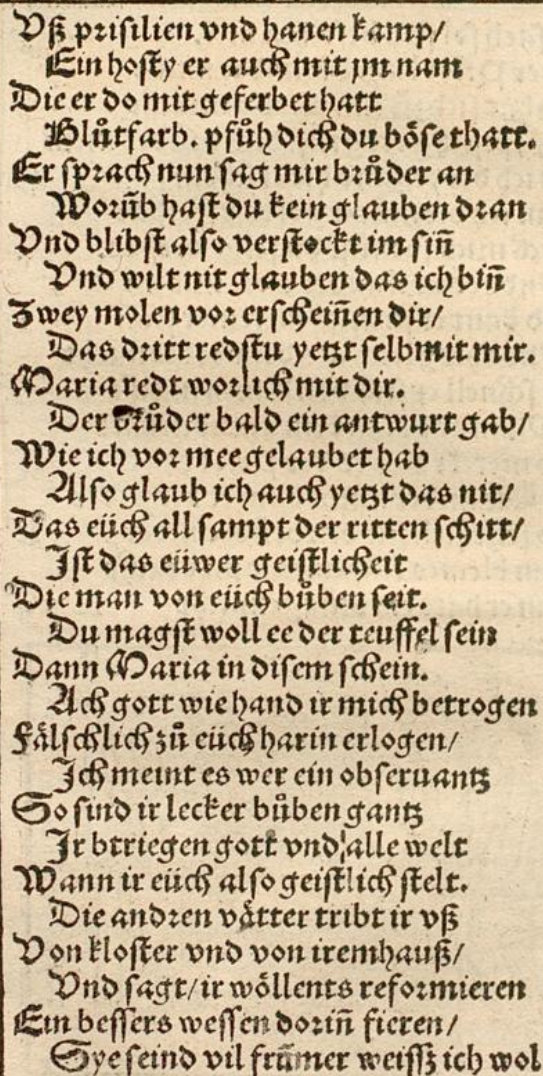 Vß prisilien vnd hanen kamp/
Ein hosty er auch mit jm nam
Die er do mit geferbet hatt
Blůtfarb. pfůh dich du böse thatt.
Er sprach nun sag mir brůder an
Worůb hast du kein glauben dran
Vnd blibst also verstockt im siñ
Vnd wilt nit glauben das ich biñ
Zwey molen vor erscheiñen dir/
Das dritt redstu yetzt selb mit mir.
Maria redt worlich mit dir.
Der Brůder bald ein antwurt gab/
Wie ich vor mee gelaubet hab
Also glaub ich auch yetzt das nit/
Das eüch all sampt der ritten schitt/
Ist das eüwer geistlicheit
Die man von eüch bůben seit.
Du magst woll ee der teuffel sein
Dann Maria in disem schein.
Ach gott wie hand ir mich betrogen
Fälschlich zů eüch harin erlogen/
Ich meint es wer ein obseruantz
So sind ir lecker bůben gantz
Ir btriegen gott vnd alle welt
Wann ir eüch also geistlich stelt.
Die andren vätter tribt ir vß
Von kloster vnd von irem hauß/
Vnd sagt/ ir wöllents reformieren
Ein bessers wessen doriñ fieren/
Sye seind vil frümer weissz ich wol